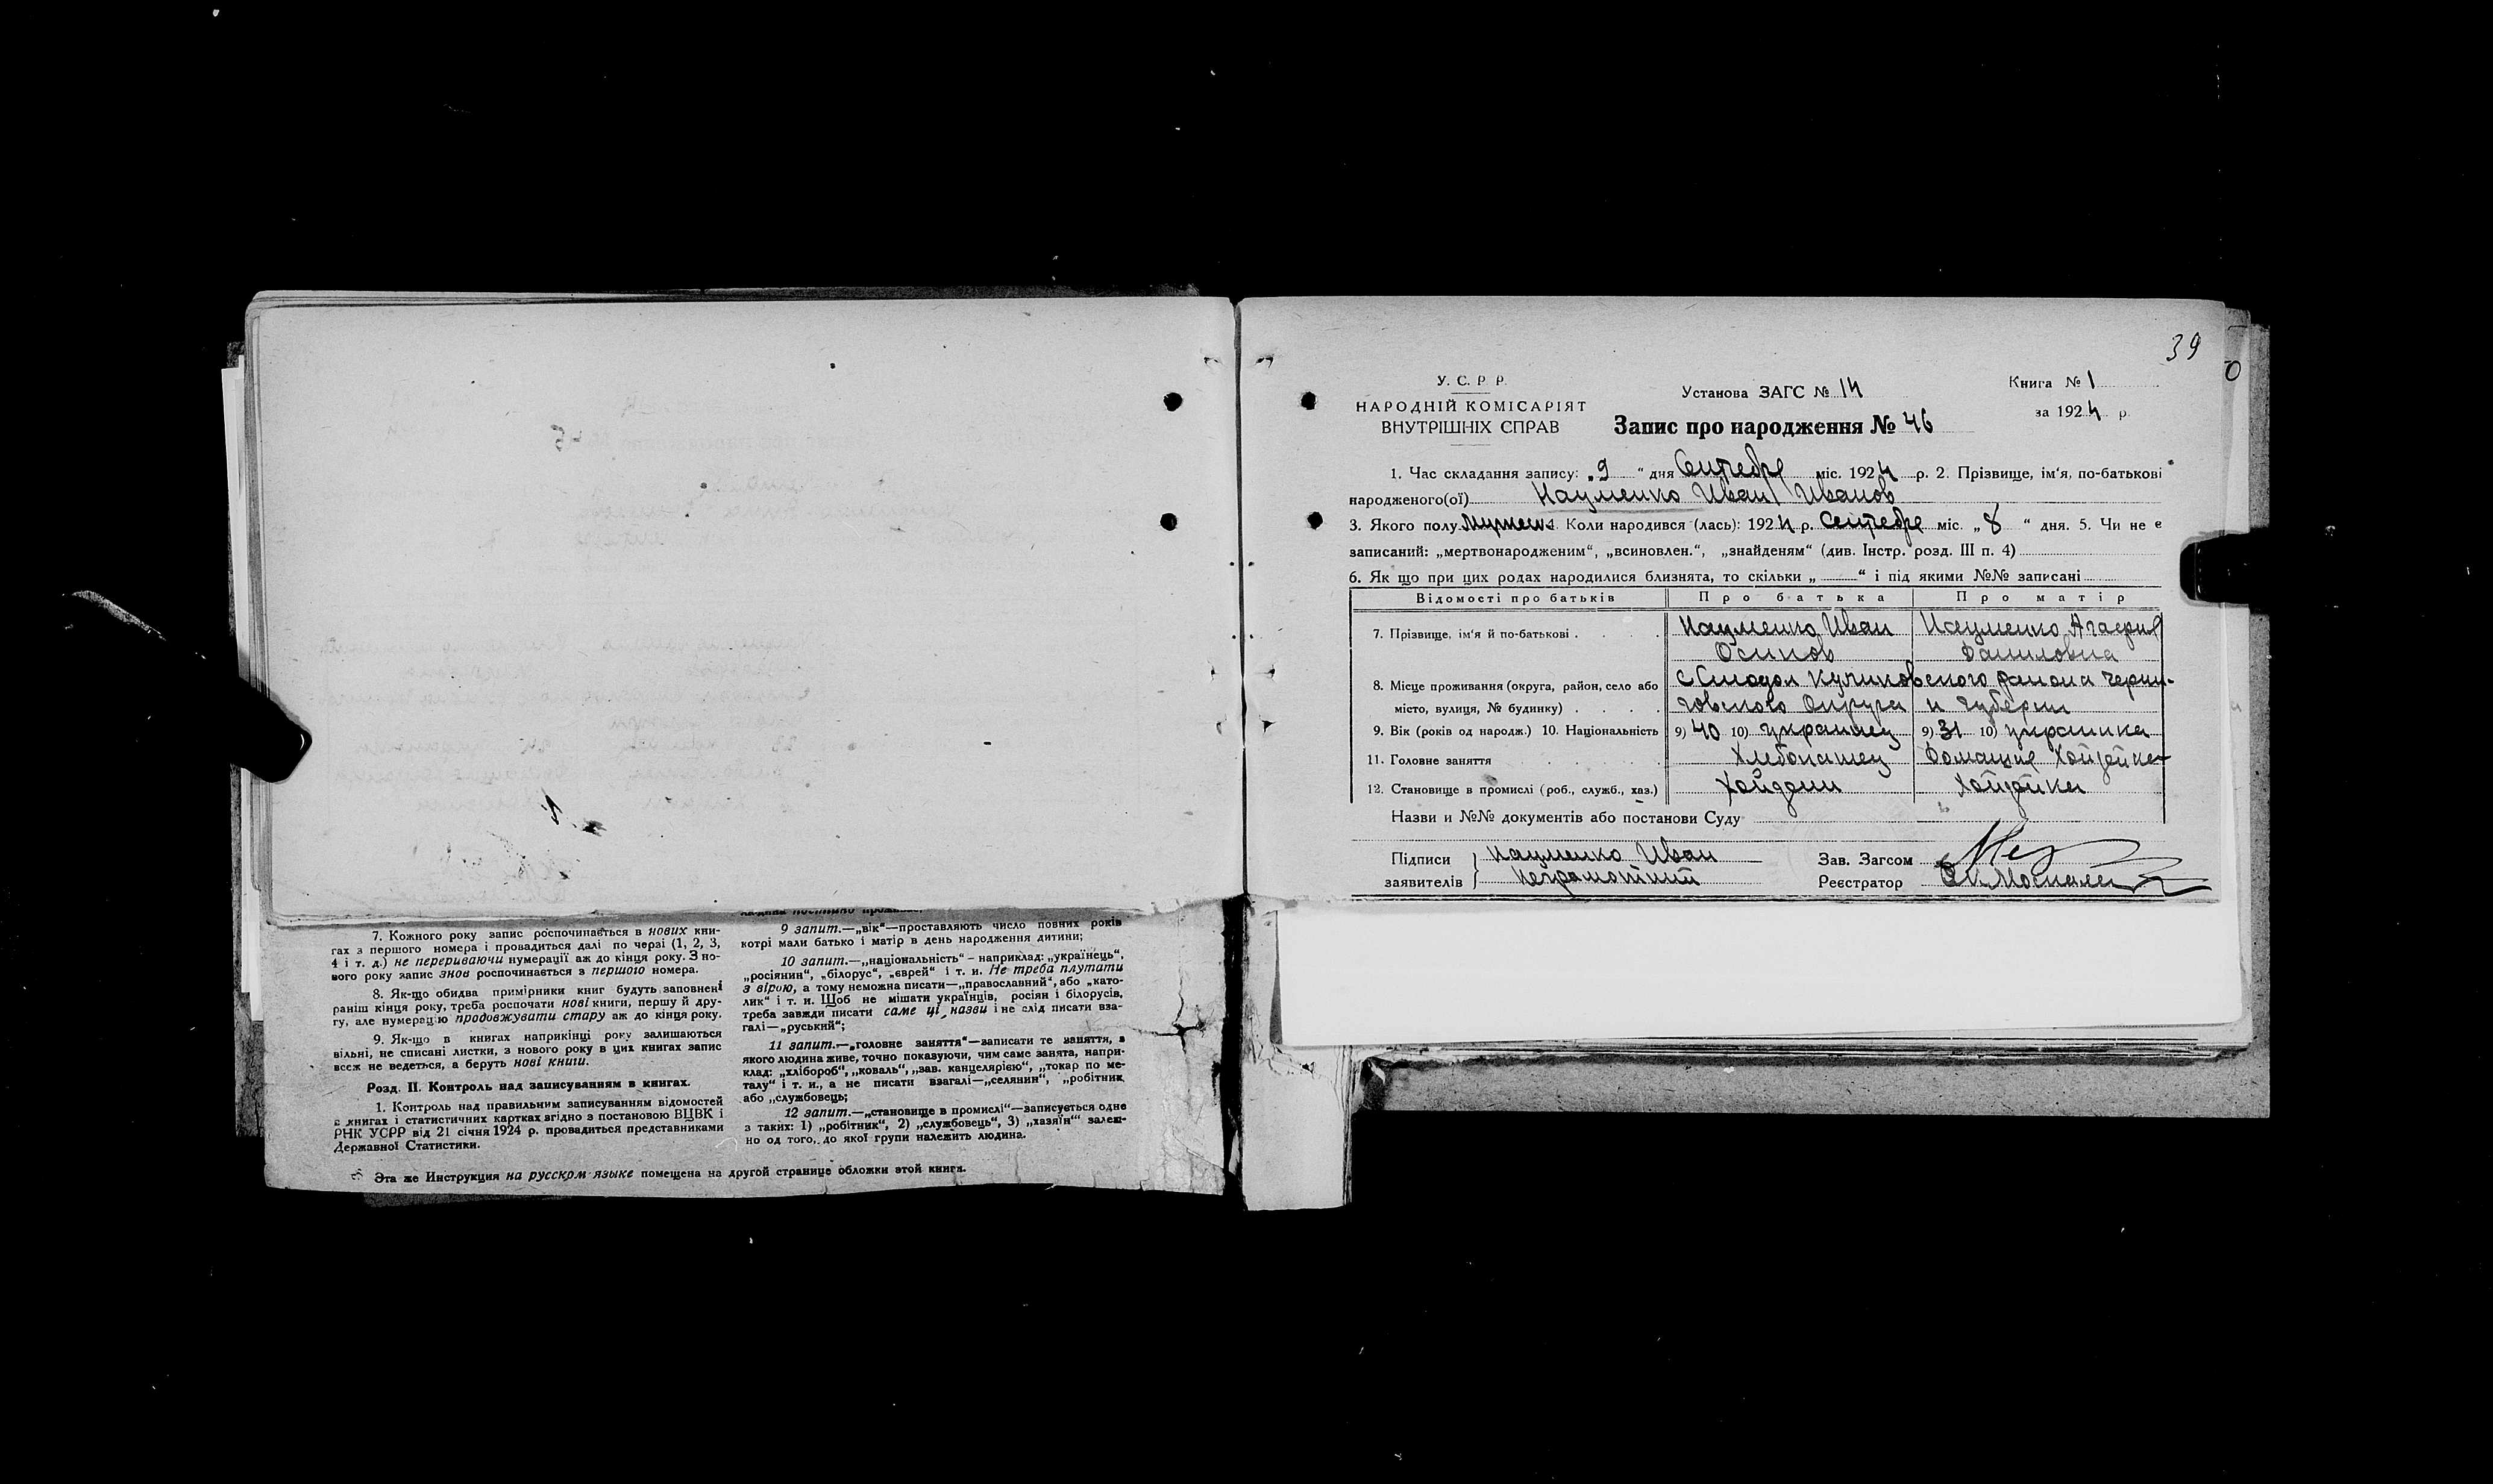 7. Кожного року запис роспочинається в нових кни-
гах з першого номера і провадиться далі по черзі (1, 2, 3,
4 і т. д.) не перериваючи нумерації аж до кінця року. З но-
вого року запис знов роспочинається з першого номера.
8. Як-що обидва примірники книг будуть заповнені
раніш кінця року, треба роспочати нові книги, першу й дру-
гу, але нумерацію продовжувати стару аж до кінця року.
9. Як-що в книгах наприкінці року залишаються
вільні, не списані листки, з нового року в цих книгах запис
всеж не ведеться, а беруть нові книги.
Розд. II. Контроль над записуванням в книгах.
1. Контроль над правильним записуванням відомостей
в книгах і статистичних картках згідно з постановою ВЦВК і
РНК УСРР від 21 січня 1924 р. провадиться представниками
Державної Статистики.
9 запит.—„вік“—проставляють число повних років
котрі мали батько і матір в день народження дитини;
10 запит.—„національність“ – наприклад: „українець“,
„росіянин“, „білорус“, „єврей“ і т. и. Не треба плутати
з вірою, а тому неможна писати—„православний“, або „като-
лик“ і т. и. Щоб не мішати українців, росіян і білорусів,
треба завжди писати саме ці назви і не слід писати вза-
галі—„руський“;
11 запит.—„головне заняття“—записати те заняття, з
якого людина живе, точно показуючи, чим саме занята, напри-
клад: „хлібороб“, „коваль“, „зав. канцелярією“, „токар по ме-
талу“ і т. и., а не писати взагалі—„селянин“, „робітник,
або „службовець;
12 запит.—„становище в промислі“—записується одне
з таких: 1) „робітник“, 2) „службовець“, 3) „хазяїн“ залеж-
но од того, до якої групи належить людина.
Эта же Инструкция на русском языке помещена на другой странице обложки этой книги.
39
У. С. Р. Р.
НАРОДНІЙ КОМІСАРІЯТ
ВНУТРІШНІХ СПРАВ
Установа ЗАГС № 14
Запис про народження № 46
Книга № 1
за 1924 р.
1. Час складання запису: „9“ дня Сентебре міс. 1924 р. 2. Прізвище, ім'я, по-батькові
народженого(ої) Науменко Иван Иванов
3. Якого полу мужеск. Коли народився (лась): 1924 р. Сентебре міс. „8“ дня. 5. Чи не є
записаний: „мертвонародженим“, „всиновлен.“, „знайденям“ (див. Інстр. розд. III п. 4)
6. Як що при цих родах народилися близнята, то скільки „ “ і під якими №№ записані
Відомості про батьків Про батька Про матір
7. Прізвище, ім'я й по-батькові Науменко Иван Науменко Агафия
Осипов Даниловна
8. Місце проживання (округа, район, село або с Смодол Куликовского района Черни-
місто, вулиця, № будинку) говского Округа и губерни
9. Вік (років од народж.) 10. Національність 9) 40 10) украинец 9) 31 10) украинка
11. Головне заняття Хлебопашец Домашня Хозяйка
12. Становище в промислі (роб., служб., хаз.) Хозяин Хозяйка
Назви и №№ документів або постанови Суду
Підписи Науменко Иван
заявителів Неграмотний
Зав. Загсом
Реєстратор